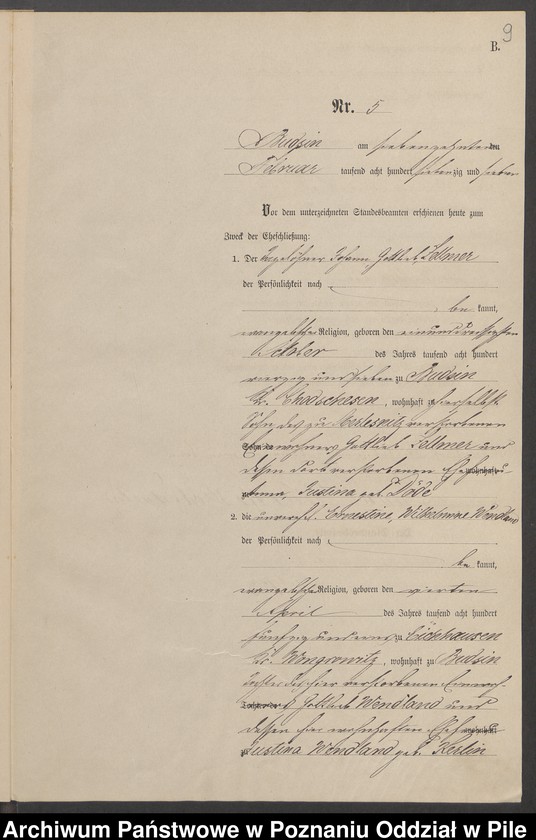 9
B.
Nr. 5
Budsin am siebenzehnten
Februar tausend acht hundert siebenzig und sieben
Vor dem unterzeichneten Standesbeamten erschienen heute zum
Zweck der Eheschließung:
1. Der Tagelöhner Johann Gottlieb Sellmer
der Persönlichkeit nach
be kannt,
evangelischer Religion, geboren den einunddreißigsten
October des Jahres tausend acht hundert
vierzig und sieben zu Budsin
Kr. Chodschesen, wohnhaft zu hierselbst
Sohn des zu verstorbenen
Einwohners Gottlieb Sellmer und
dessen dort verstorbenen Ehe
Justina geb. Döde
2. die unverehel. Ernestine, Wilhelmine Wendland
der Persönlichkeit nach
be kannt,
evangelischer Religion, geboren den vierten
April des Jahres tausend acht hundert
fünfzig und zu
Kr. Wongrowitz, wohnhaft zu Budsin
Tochter des hier verstorbenen
Gottlieb Wendland und
dessen hier wohnhaften Ehe
Justina Wendland geb. Kerlin
Archiwum Państwowe w Poznaniu Oddział w Pile